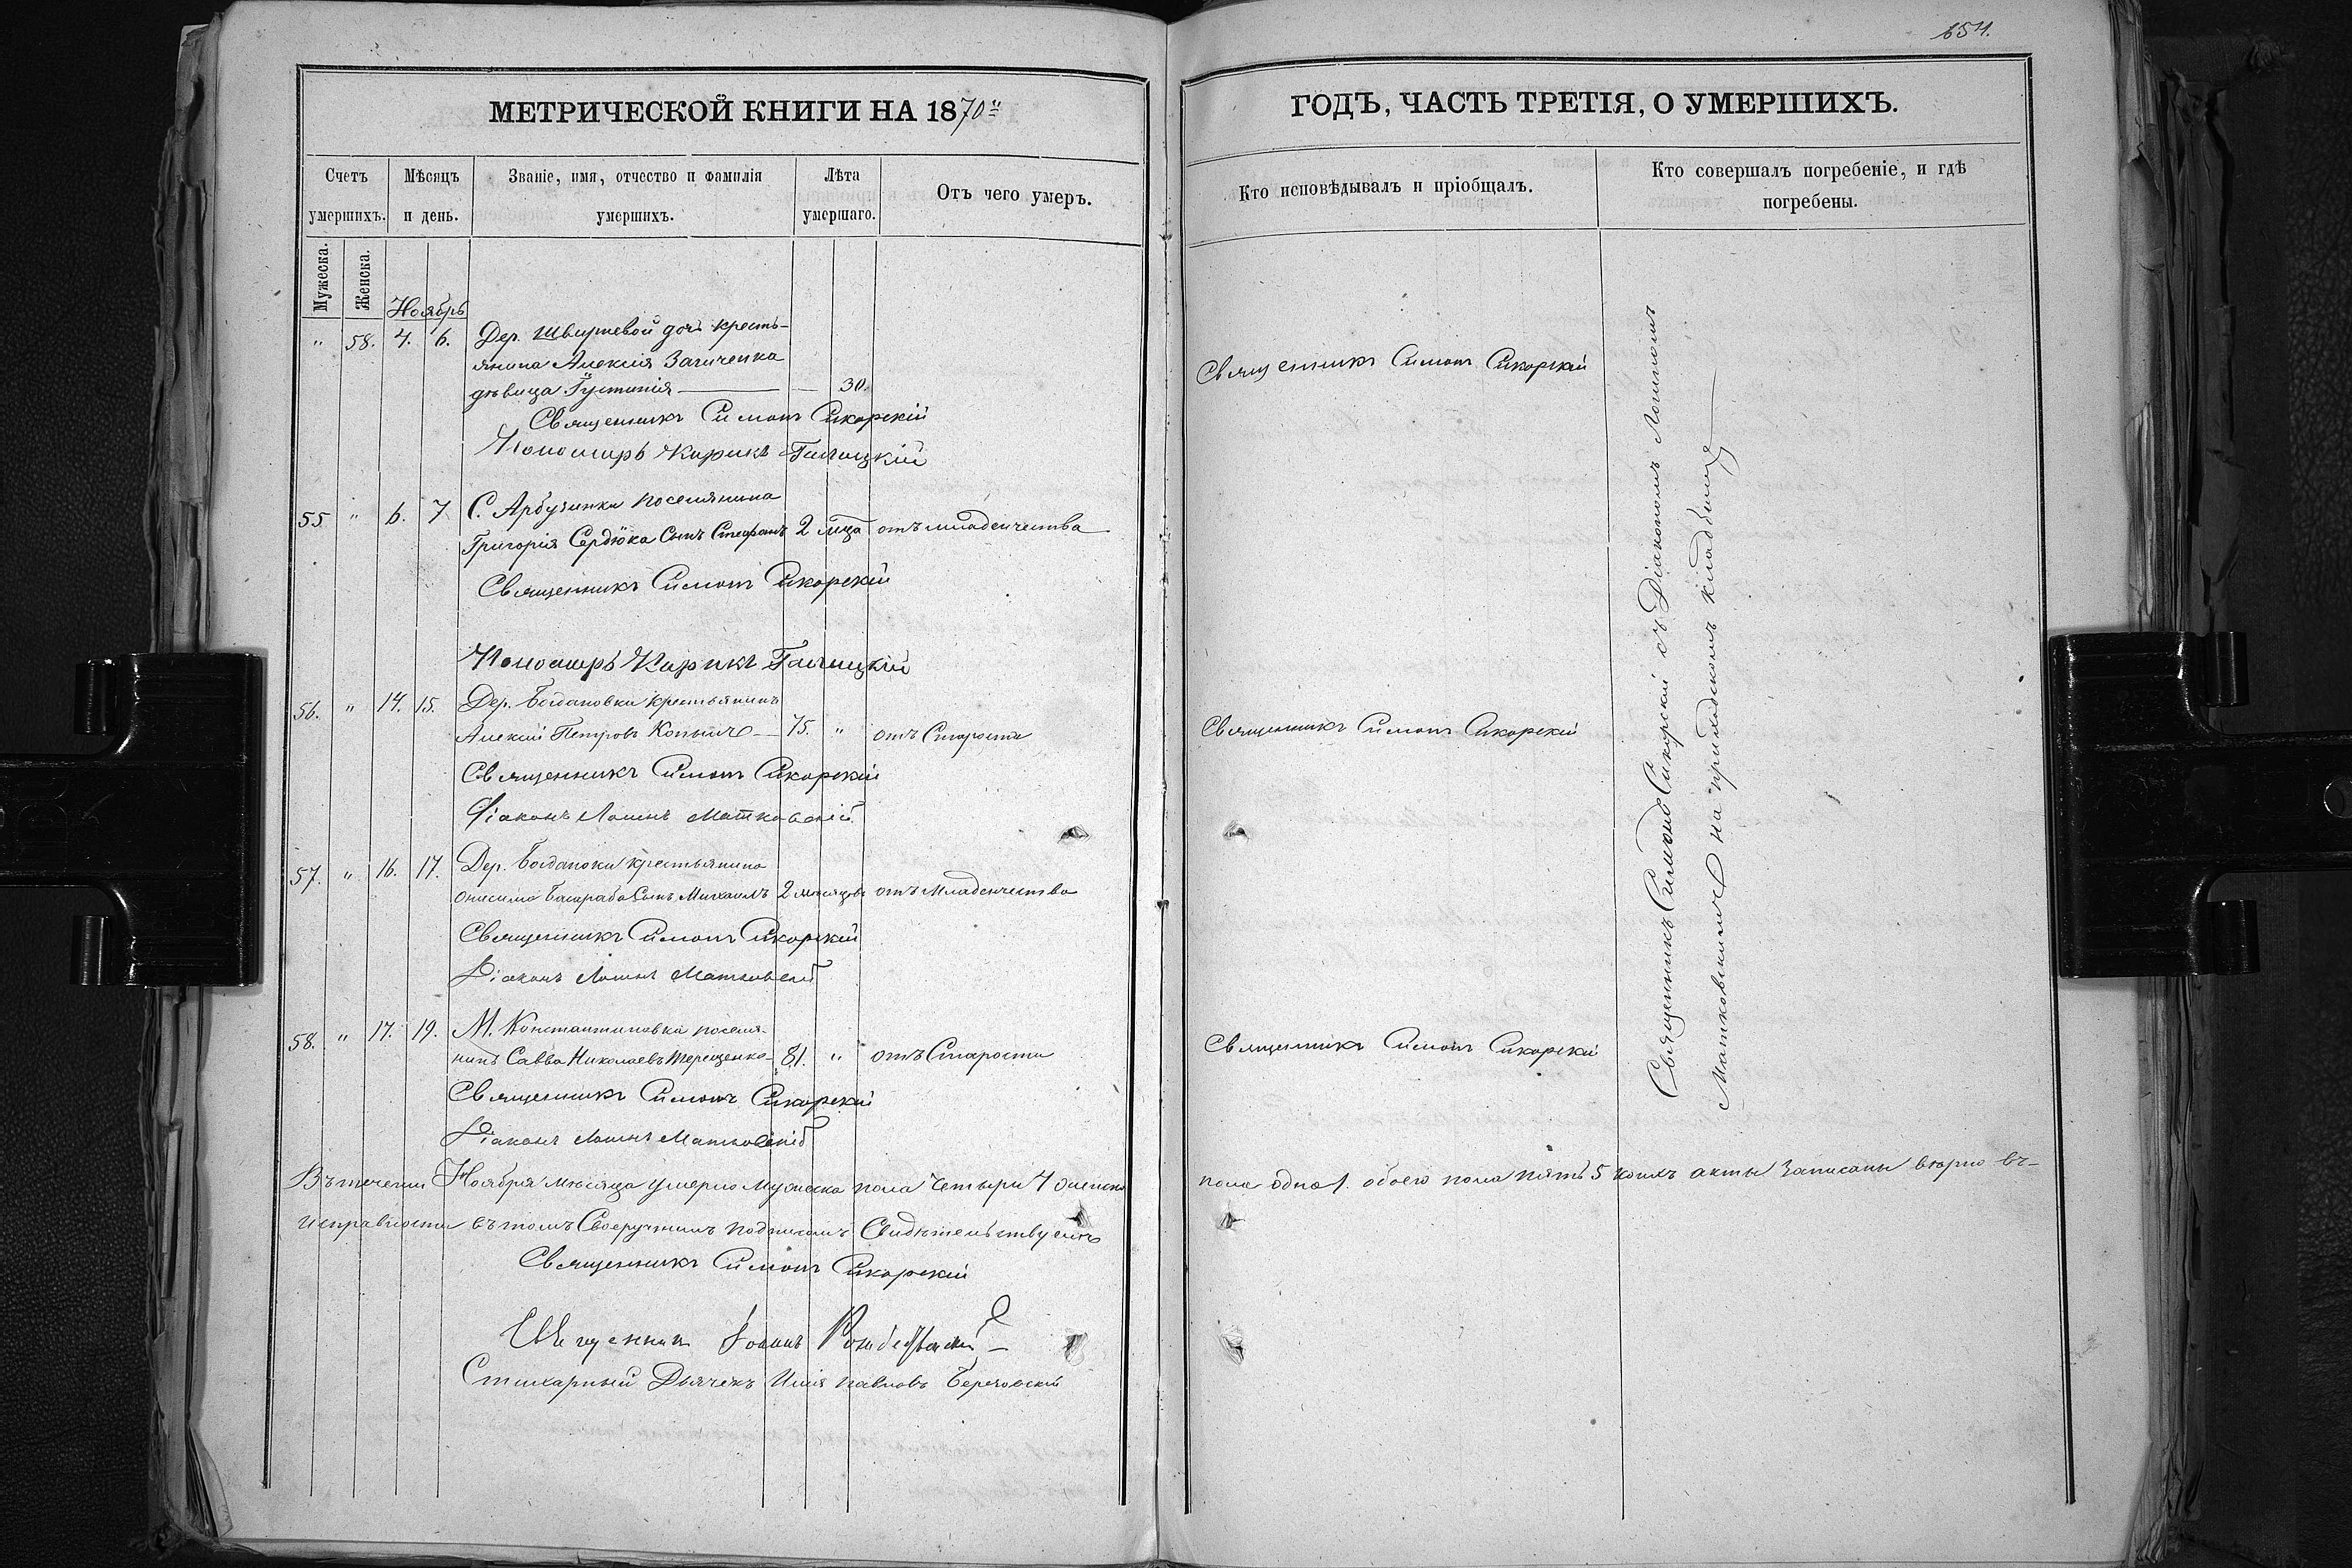 654.
МЕТРИЧЕСКОЙ КНИГИ НА 1870й
ГОДЪ, ЧАСТЬ ТРЕТІЯ, О УМЕРШИХЪ.
Счетъ умершихъ.
Мѣсяцъ и день.
Званіе, имя, отчество и фамилія умершихъ.
Лѣта умершаго.
Отъ чего умеръ.
Кто исповѣдывалъ и пріобщалъ.
Кто совершалъ погребеніе, и гдѣ погребены.
Мужеска.
Женска.
Ноябрь
" 58. 4. 6. Дер. дочь кресть-
янина Алексія
дѣвица Іустинія — 30. Священникъ Симонъ Сикорскій
Священникъ Симонъ Сикорскій
Пономарь Кирикъ Галицкій
55 " 6. 7. С. Арбузинки поселянина
Григорія Сердюка сынъ Стефанъ 2 мца отъ младенчества
Священникъ Симонъ Сикорскій
Пономарь Кирикъ Галицкій
56. " 14. 15. Дер. Богдановки крестьянинъ
Алексій Петровъ 75. " отъ Старости Священникъ Симонъ Сикорскій
Священникъ Симонъ Сикорскій
Діаконъ Логинъ Матковскій
57. " 16. 17. Дер. крестьянина
Онисима сынъ Михаилъ 2 месяцовъ отъ Младенчества
Священникъ Симонъ Сикорскій
Діаконъ Логинъ Матковскій
58. " 17. 19. М. Константиновки поселя-
нинъ Савва Николаевъ Терещенко 81. " отъ Старости Священникъ Симонъ Сикорскій
Священникъ Симонъ Сикорскій
Діаконъ Логинъ Матковскій
Священникъ Симонъ Сикорскій съ Діакономъ Логиномъ
Матковскимъ на приходскомъ кладбище
Въ течении Ноября месяца умерло Мужеска пола Четыри 4 женска пола одна 1. обоего пола пять 5 коихъ акты Записаны верно въ-
исправности въ томъ Своеручнымъ подписомъ Свидетельствуемъ
Священникъ Симонъ Сикорскій
Священникъ Іоаннъ
Стихарный Дьячекъ Илія Павловъ Березовскій